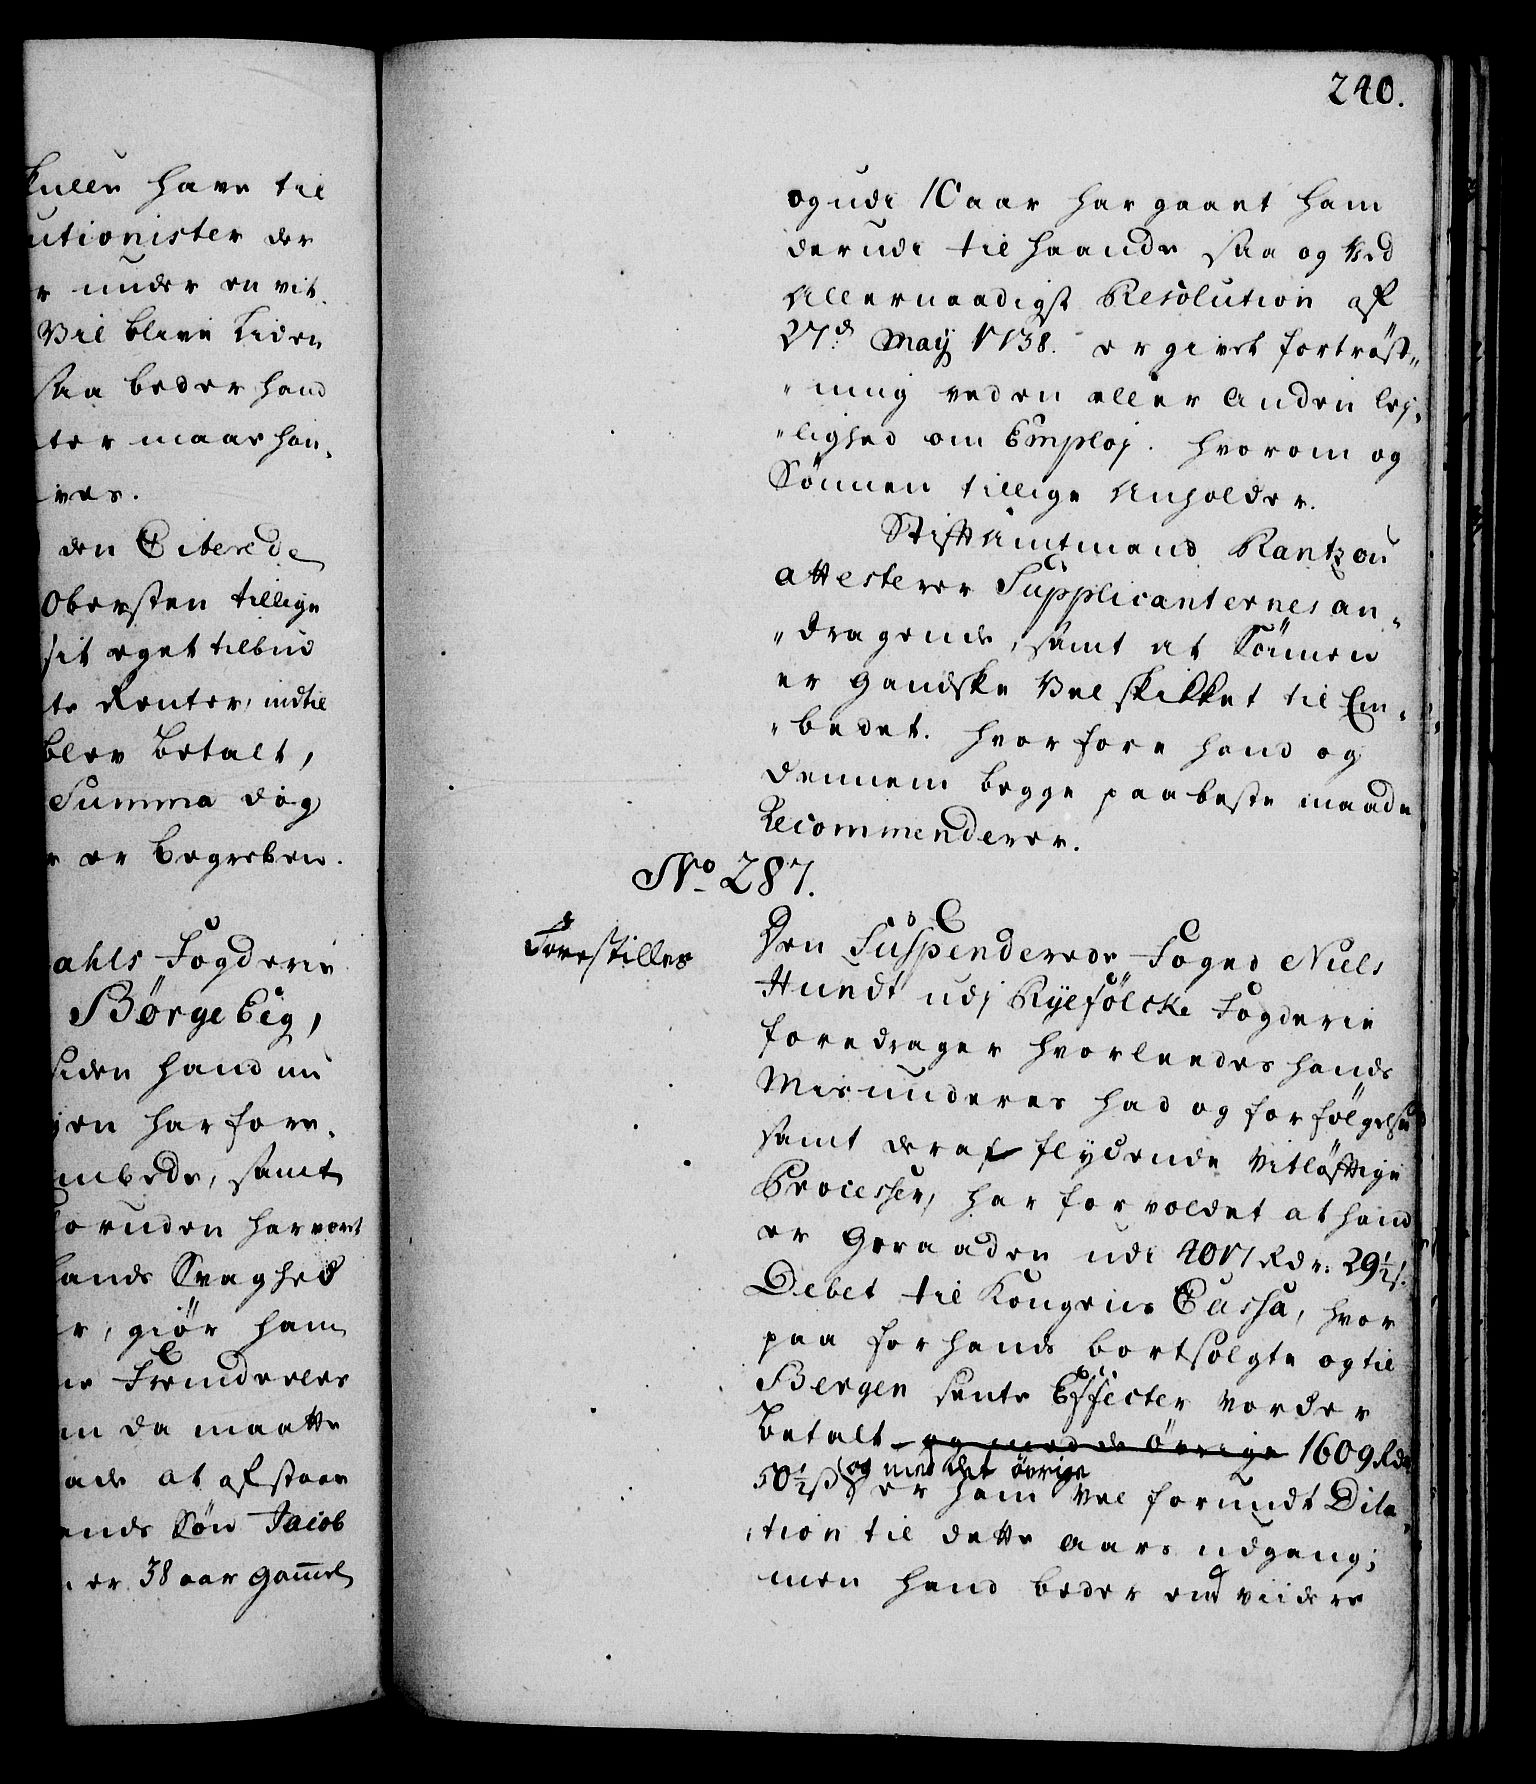 kulle have til
utionister der
r under en vit
Vil blive Liden
saa beder hand
ter maae hon„
ves.
den Citerede
Obersten tillige
sit eget tilbud
te Renter, indtil
blev betalt,
Summa dog
r er begreben.
ahls Fogderie
Børge Eig,
siden hand nu
gen har fore„
mbede, samt
foruden har vært
lands Svaghed
r, giør ham
ne Fremdeeles
m da maatte
ade at afstaae
ands Søn Jacob
er 38 aar gamel
240.
og udi 10 aar har gaaet ham
derudi til haande saa og ved
Allernaadigst Resolution af
27.d May 1738. er givet fortrøst„
„ning ved en eller anden lej„
„lighed om Emploj. hvorom og
Sönnen tillige anholder.
Stiftamtmand Rantzou
attesterer Supplicanternes an„
„dragende, samt at Sönnen
er gandske vel skikket til Em„
„bedet. hvorfore hand og
dennem begge paa beste maade
Recommenderer.
No 287.
Forestilles
Den Suspenderede Foged Niels
Hundt udj Ryefölcke Fogderie
foredrager hvorleedes hands
Misunderes had og forfölgelse
samt deraf flydende vitløftige
Processer, har forvoldet at hand
er geraaden udi 4017 Rdr. 29½ s.
Debet til Kongens Cassa, hvor
paa for hands bortsolgte og til
Bergen sente Effecter vorder
betalt og med de övrige 1609 Rdr
50½ s (og med det övrige
er ham vel forundt Dila„
„tion til dette aars udgang;
men hand beder end viidere